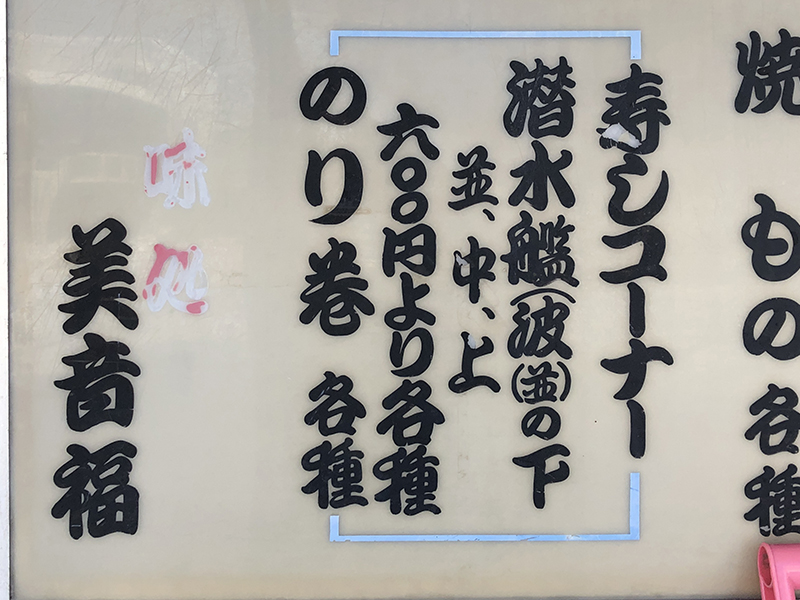 焼もの各種
寿シコーナー
潜水艦(波(並)の下
並、中、上
六〇〇円より各種
のり巻各種
味処
美音福